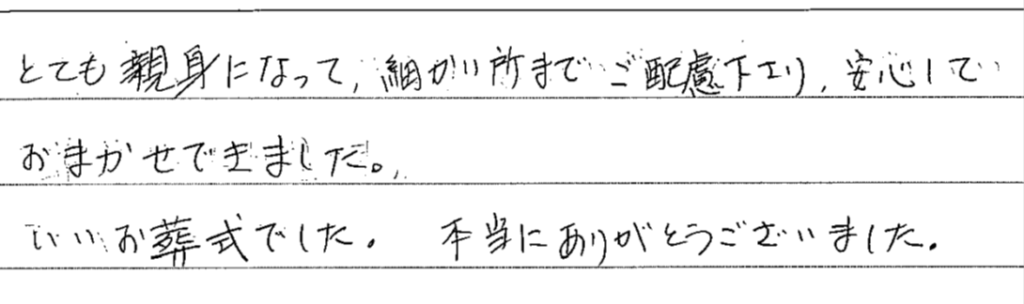 とても親身になって、細かい所までご配慮下さり、安心して
おまかせできました。
いいお葬式でした。 本当にありがとうございました。